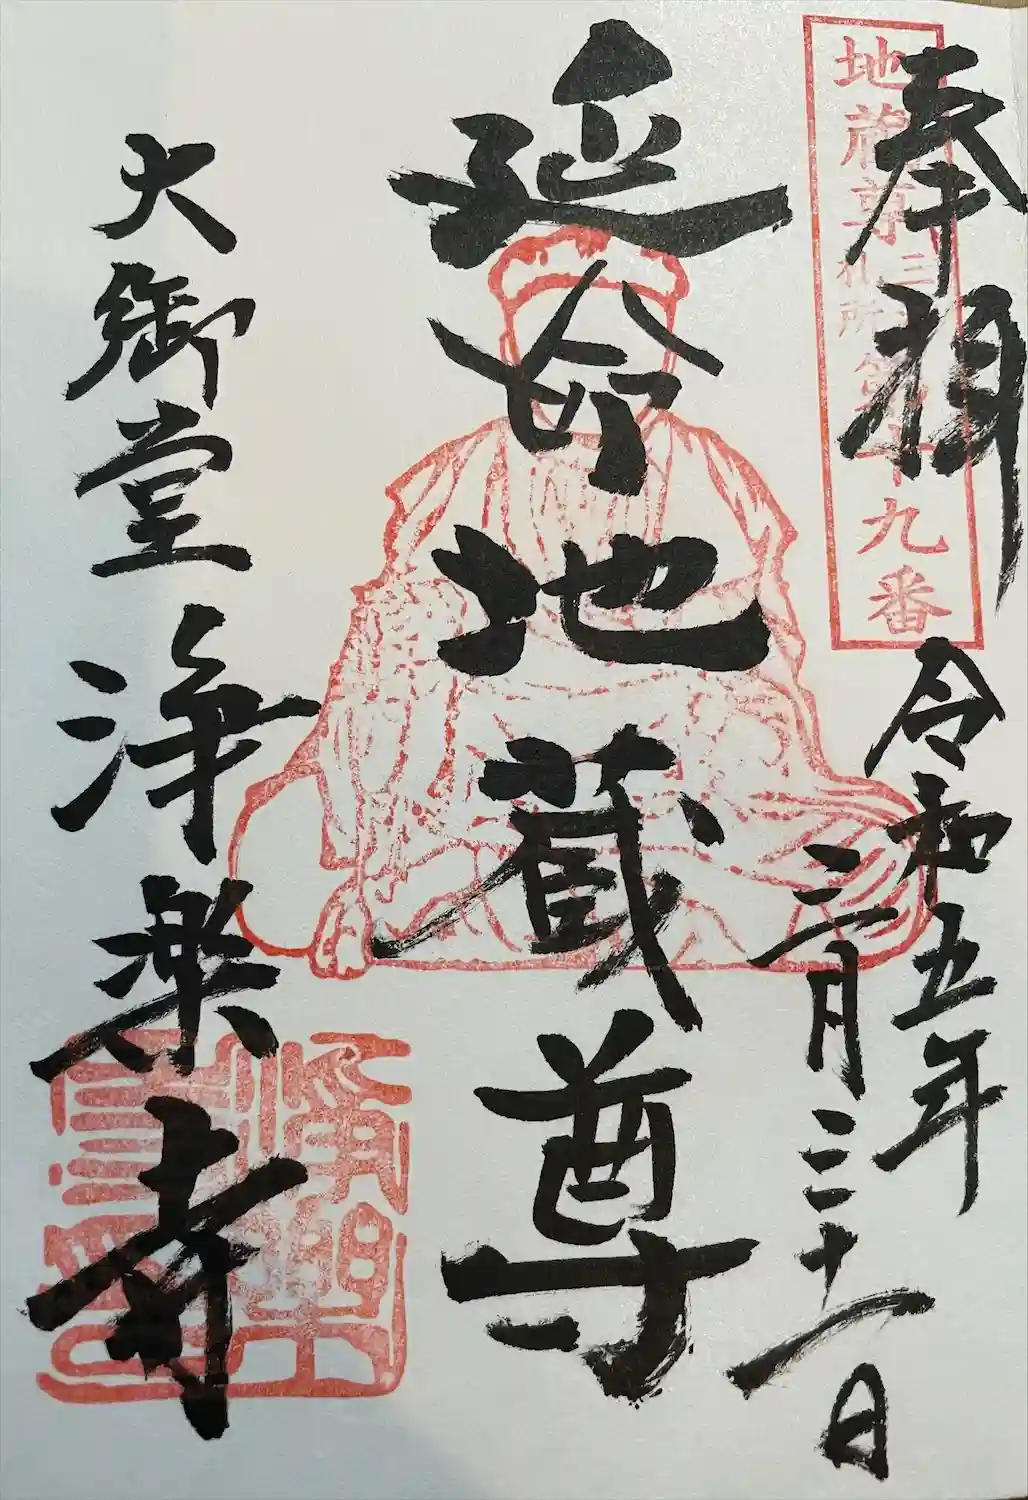 奉拝
地蔵尊
札所
第十九番
令和五年
三月三十一日
延命地蔵尊
大御堂 浄楽寺